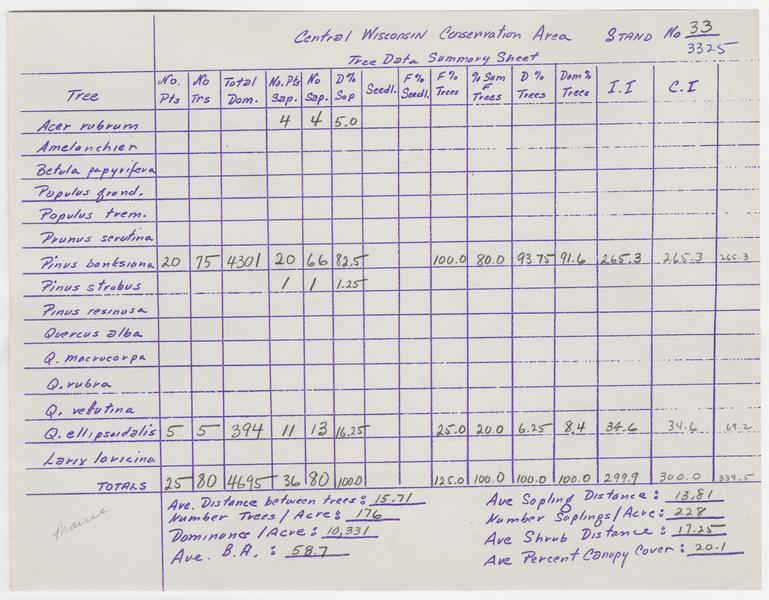 Central Wisconsin Conservation Area Stand No 33
3325
Tree Data Summary Sheet
Tree No. Pts No Trs Total Dom. No. Pts Sap. No Sap. D% Sap Seedl. F% Seedl. F% Trees % Sum F Trees D% Trees Dom% Trees I.I C.I
Acer rubrum 4 4 5.0
Amelanchier
Betula papyrifera
Populus grand.
Populus trem.
Prunus serotina
Pinus banksiana 20 75 4301 20 66 82.5 100.0 80.0 93.75 91.6 265.3 265.3 265.3
Pinus strobus 1 1 1.25
Pinus resinosa
Quercus alba
Q. macrocarpa
Q. rubra
Q. velutina
Q. ellipsoidalis 5 5 394 11 13 16.25 25.0 20.0 6.25 8.4 34.6 34.6 69.2
Larix laricina
TOTALS 25 80 4695 36 80 100.0 125.0 100.0 100.0 100.0 299.9 300.0 334.5
Ave. Distance between trees: 15.71 Ave Sapling Distance: 13.81
Number Trees/Acre: 176 Number Saplings/Acre: 228
Dominance/Acre: 10,331 Ave Shrub Distance: 17.25
Ave. B.A.: 58.7 Ave Percent Canopy Cover: 20.1
Prairie